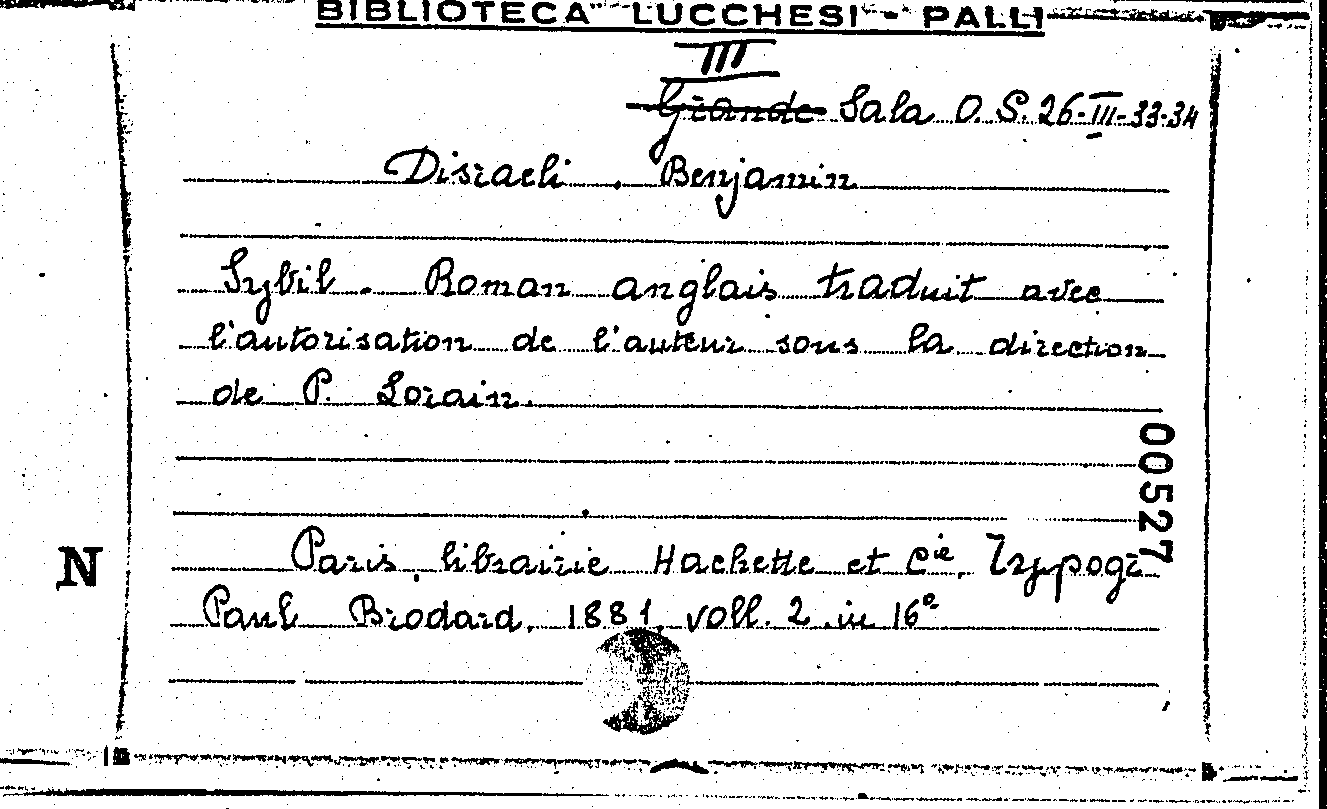 BIBLIOTECA LUCCHESI - PALLI
III
Grande Sala O. S. 26-III-33-34
Disraeli, Benjamin
Sybil. Roman anglais traduit avec
l'autorisation de l'auteur sous la direction
de P. Lorain.
00527
N
Paris, librairie Hachette et Cie, Typogr
Paul Brodard, 1881, voll. 2 in 16°